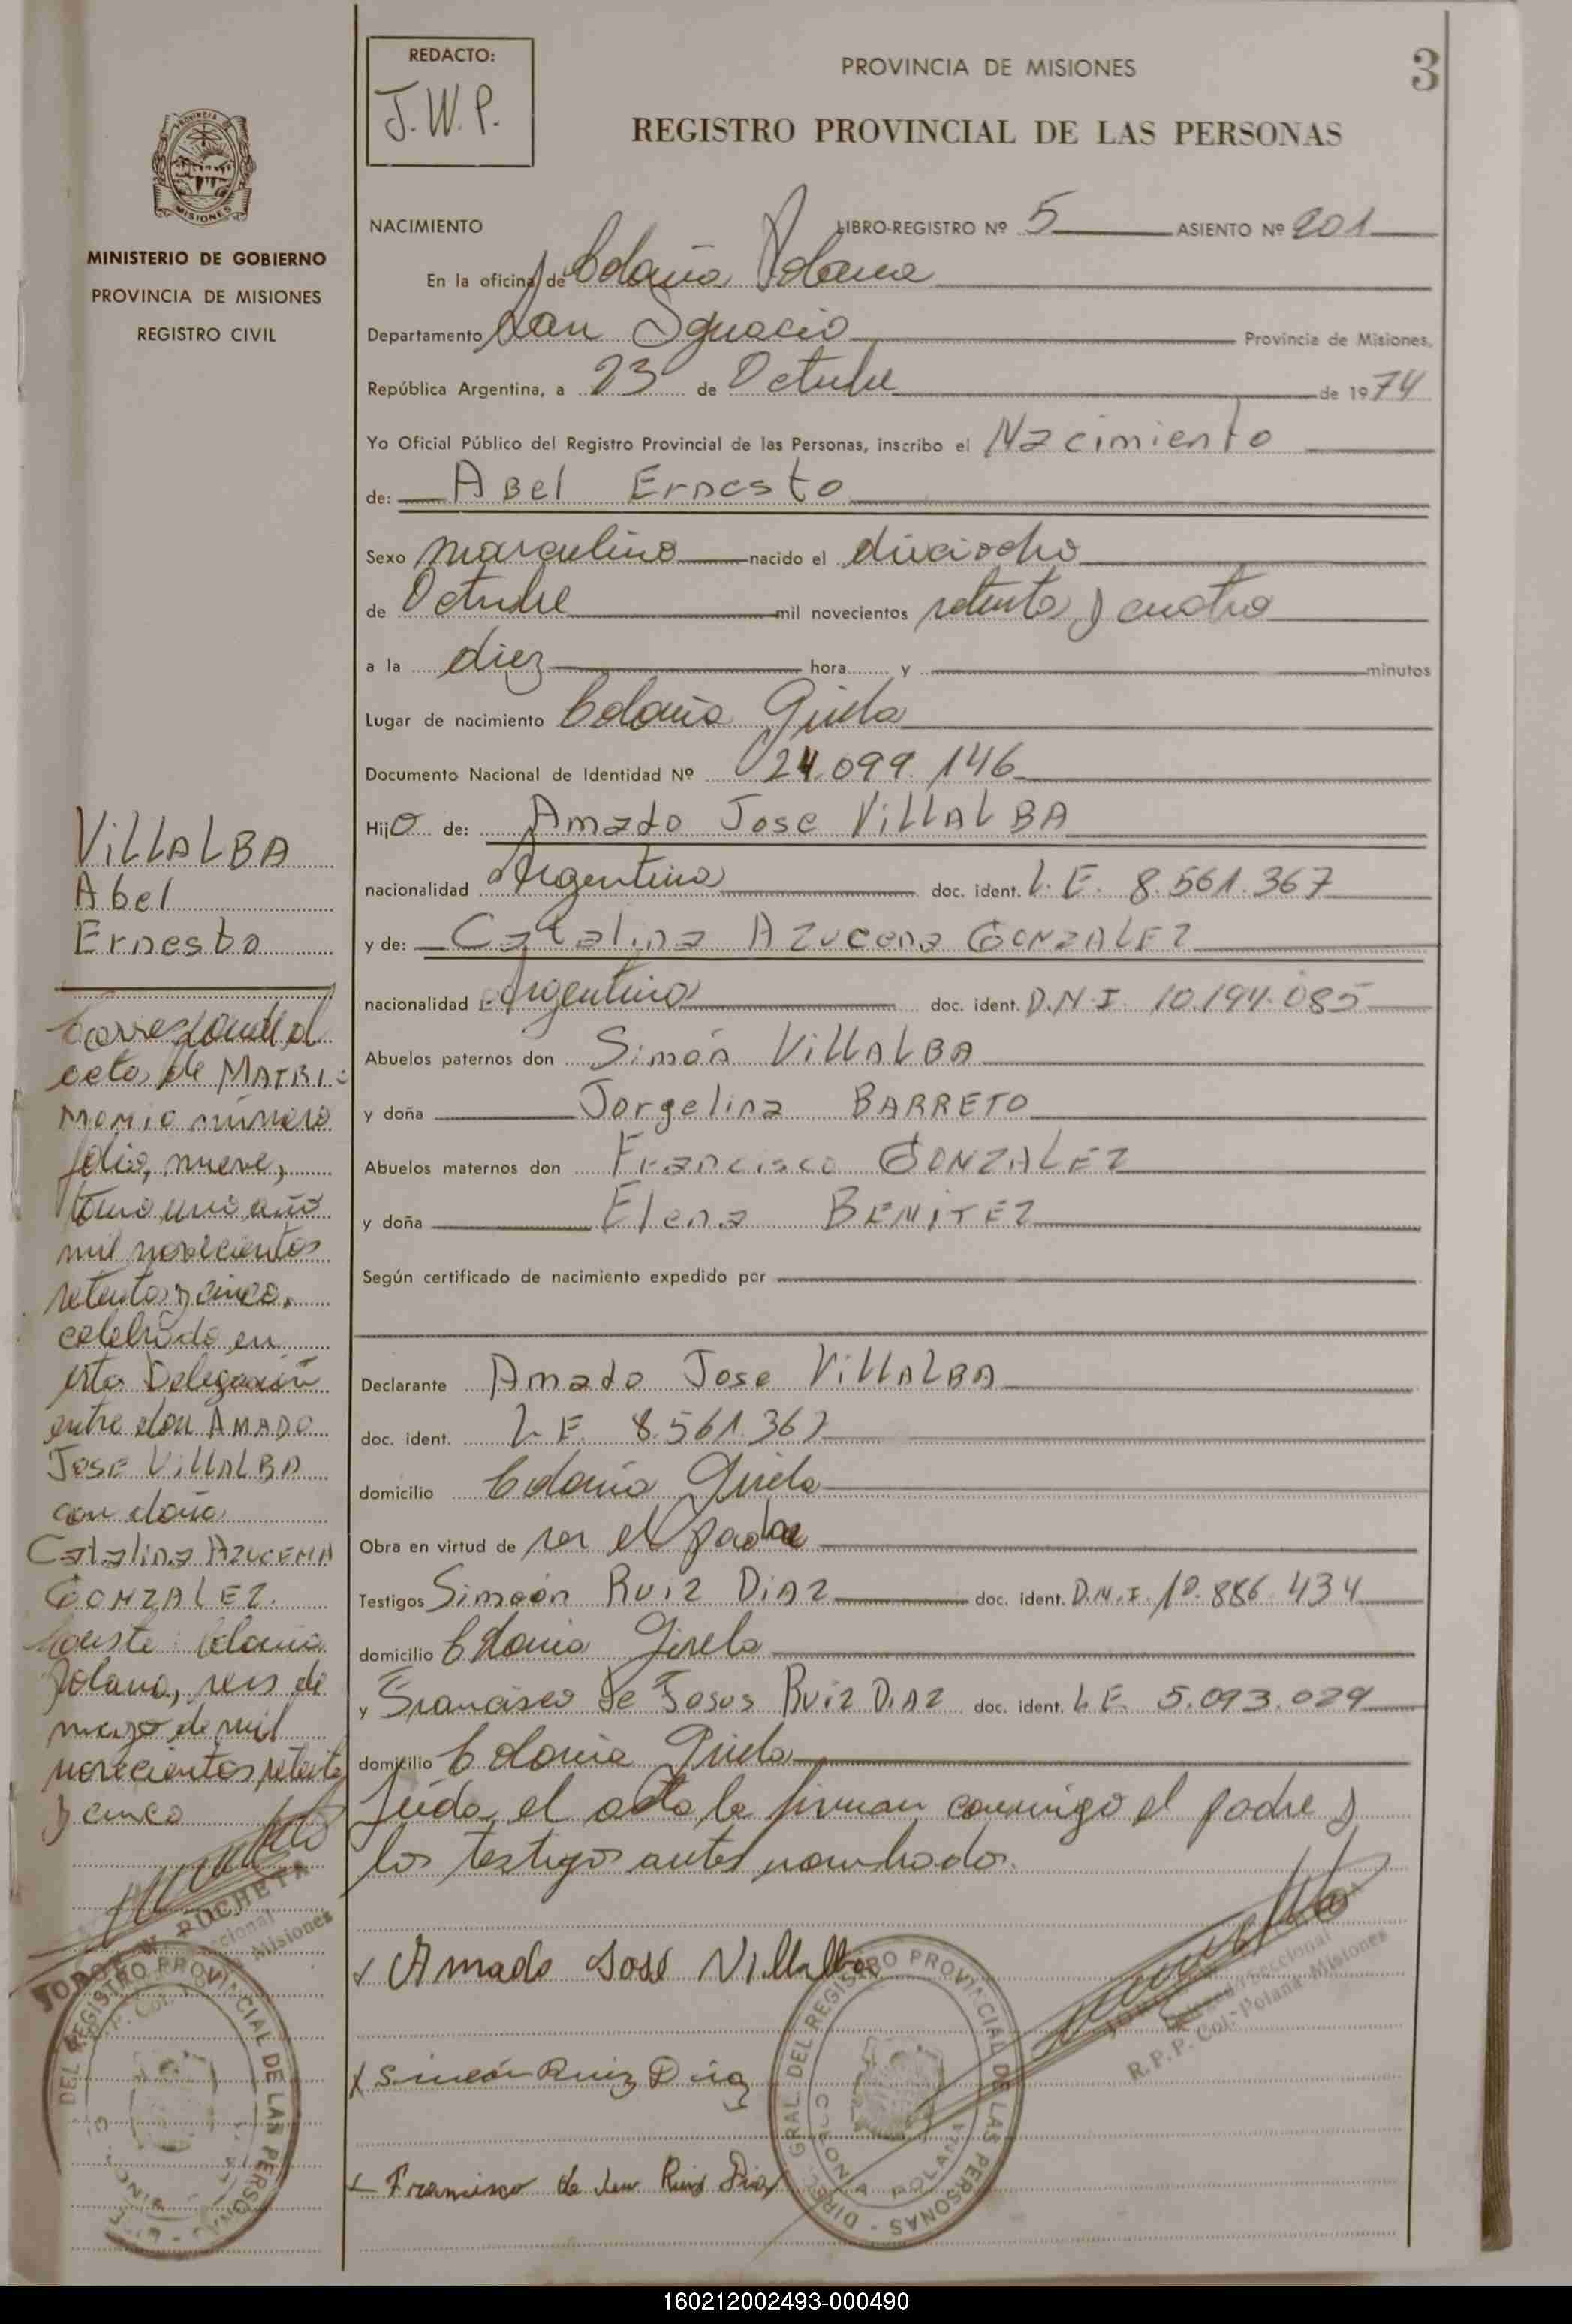 REDACTO:
J.W.P.
PROVINCIA DE MISIONES
3
REGISTRO PROVINCIAL DE LAS PERSONAS
MISIONES
MINISTERIO DE GOBIERNO
PROVINCIA DE MISIONES
REGISTRO CIVIL
NACIMIENTO LIBRO-REGISTRO Nº 5 ASIENTO Nº 201
En la oficina de Colonia Polana
Departamento San Ignacio Provincia de Misiones,
República Argentina, a 23 de Octubre de 1974
Yo Oficial Público del Registro Provincial de las Personas, inscribo el Nacimiento
de: Abel Ernesto
Sexo masculino nacido el dieciocho
de Octubre mil novecientos setenta y cuatro
a la diez hora y minutos
Lugar de nacimiento Colonia Gisela
Documento Nacional de Identidad Nº 24.099.146
Hijo de: Amado Jose VILLALBA
nacionalidad Argentina doc. ident. L.E. 8.561.367
y de: Catalina Azucena GONZALEZ
nacionalidad Argentina doc. ident. D.N.I. 10.194.085
Abuelos paternos don Simón VILLALBA
y doña Jorgelina BARRETO
Abuelos maternos don Francisco GONZALEZ
y doña Elena BENITEZ
Según certificado de nacimiento expedido por
Declarante Amado Jose VILLALBA
doc. ident. L.E. 8.561.367
domicilio Colonia Gisela
Obra en virtud de ser el padre
Testigos Simeón RUIZ DIAZ doc. ident. D.N.I. 10.886.434
domicilio Colonia Gisela
y Francisco de Jesus RUIZ DIAZ doc. ident. L.E. 5.093.029
domicilio Colonia Gisela
Leida el acta la firman conmigo el padre y
los testigos antes nombrados.
Amado José Villalba
Simeón Ruiz Diaz
Francisco de Ruiz Diaz
DIREC. GRAL. DEL REGISTRO PROVINCIAL DE LAS PERSONAS
COLONIA POLANA
R.P.P. Col. Polana-Misiones
VILLALBA
Abel
Ernesto
Corresponde al
acta de MATRI-
MONIO número
folio, nueve,
tomo uno año
mil novecientos
setenta y cinco,
celebrado en
esta Delegación
entre don AMADO
JOSE VILLALBA
con doña
Catalina AZUCENA
GONZALEZ.
Conste: Colonia
Polana, seis de
mayo de mil
novecientos setenta
y cinco
JORGE W. PUCHETA
Misiones
DEL REGISTRO PROVINCIAL DE LAS PERSONAS
160212002493-000490